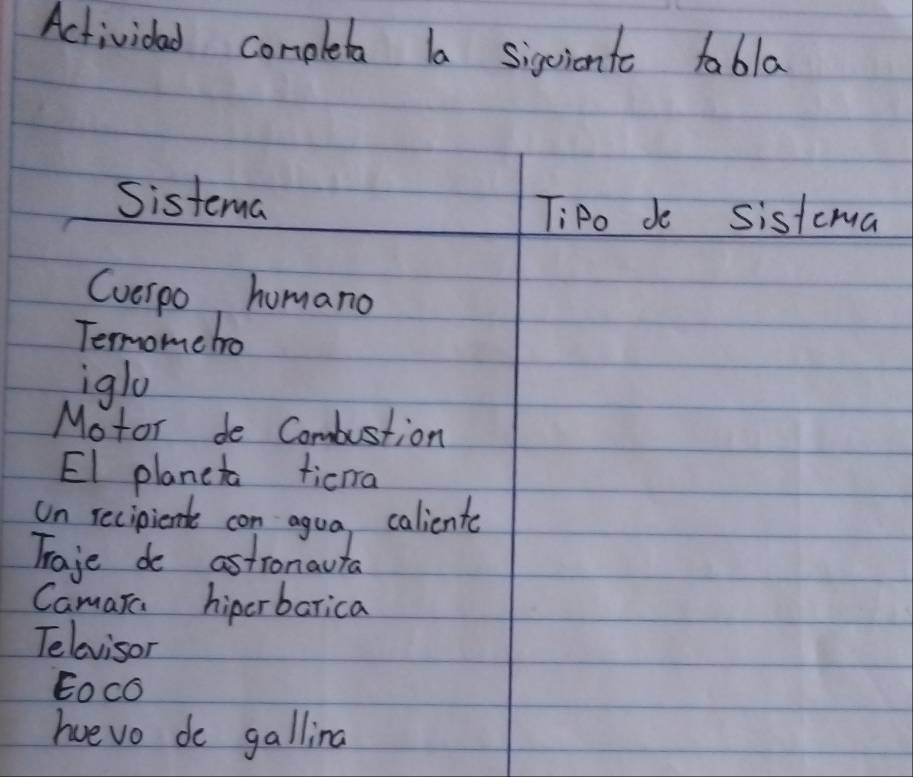 Actividad completa la siguiente tabla
Sistema
Tipo de Sistema
Cuerpo humano
Termometro
iglu
Motor de Combustion
El planeta tierra
Un recipiente con agua caliente
Traje de astronauta
Camara hiperbarica
Televisor
Foco
huevo de gallina